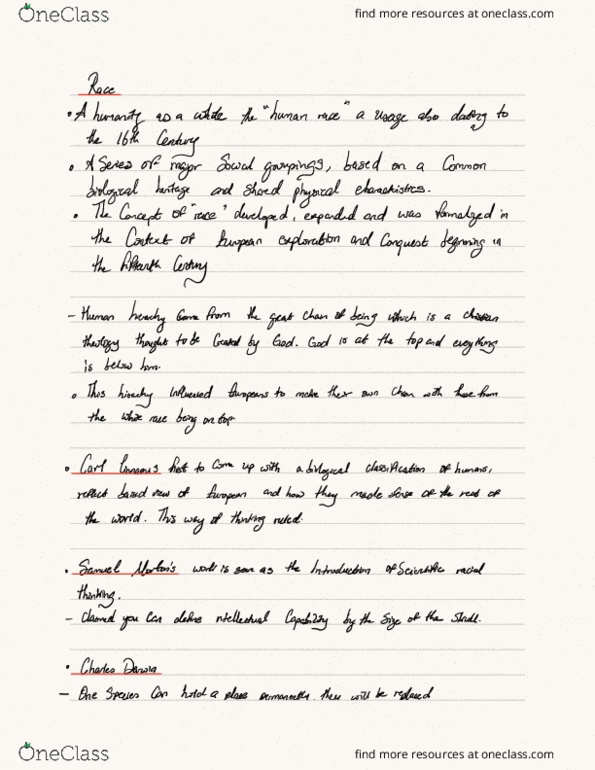 OneClass
find more resources at oneclass.com
Race
• A humanity as a whole the "human race" a usage also dating to
the 16th Century
• A Series of major Social groupings, based on a Common
biological heritage and shared physical characteristics.
• The Concept of "race" developed, expanded and was formalized in
the Context of European exploration and Conquest beginning in
the fifteenth Century
- Human hierachy Come from the great Chain of being which is a christian
theology thought to be Created by God. God is at the top and everything
is below him.
• This hierachy influenced Europeans to make their own Chain with those from
the white race being on top.
• Carl Linnaeus first to Come up with a biological classification of humans,
reflect based view of European and how they made Sense of the rest of
the world. This way of thinking
• Samuel Morton's work is seen as the Introduction of Scientific racial
thinking.
- Claimed you Can define intellectual Capability by the Size of the Skull.
• Charles Darwin
- One Species Can hold a place permanently they will be replaced
OneClass
find more resources at oneclass.com